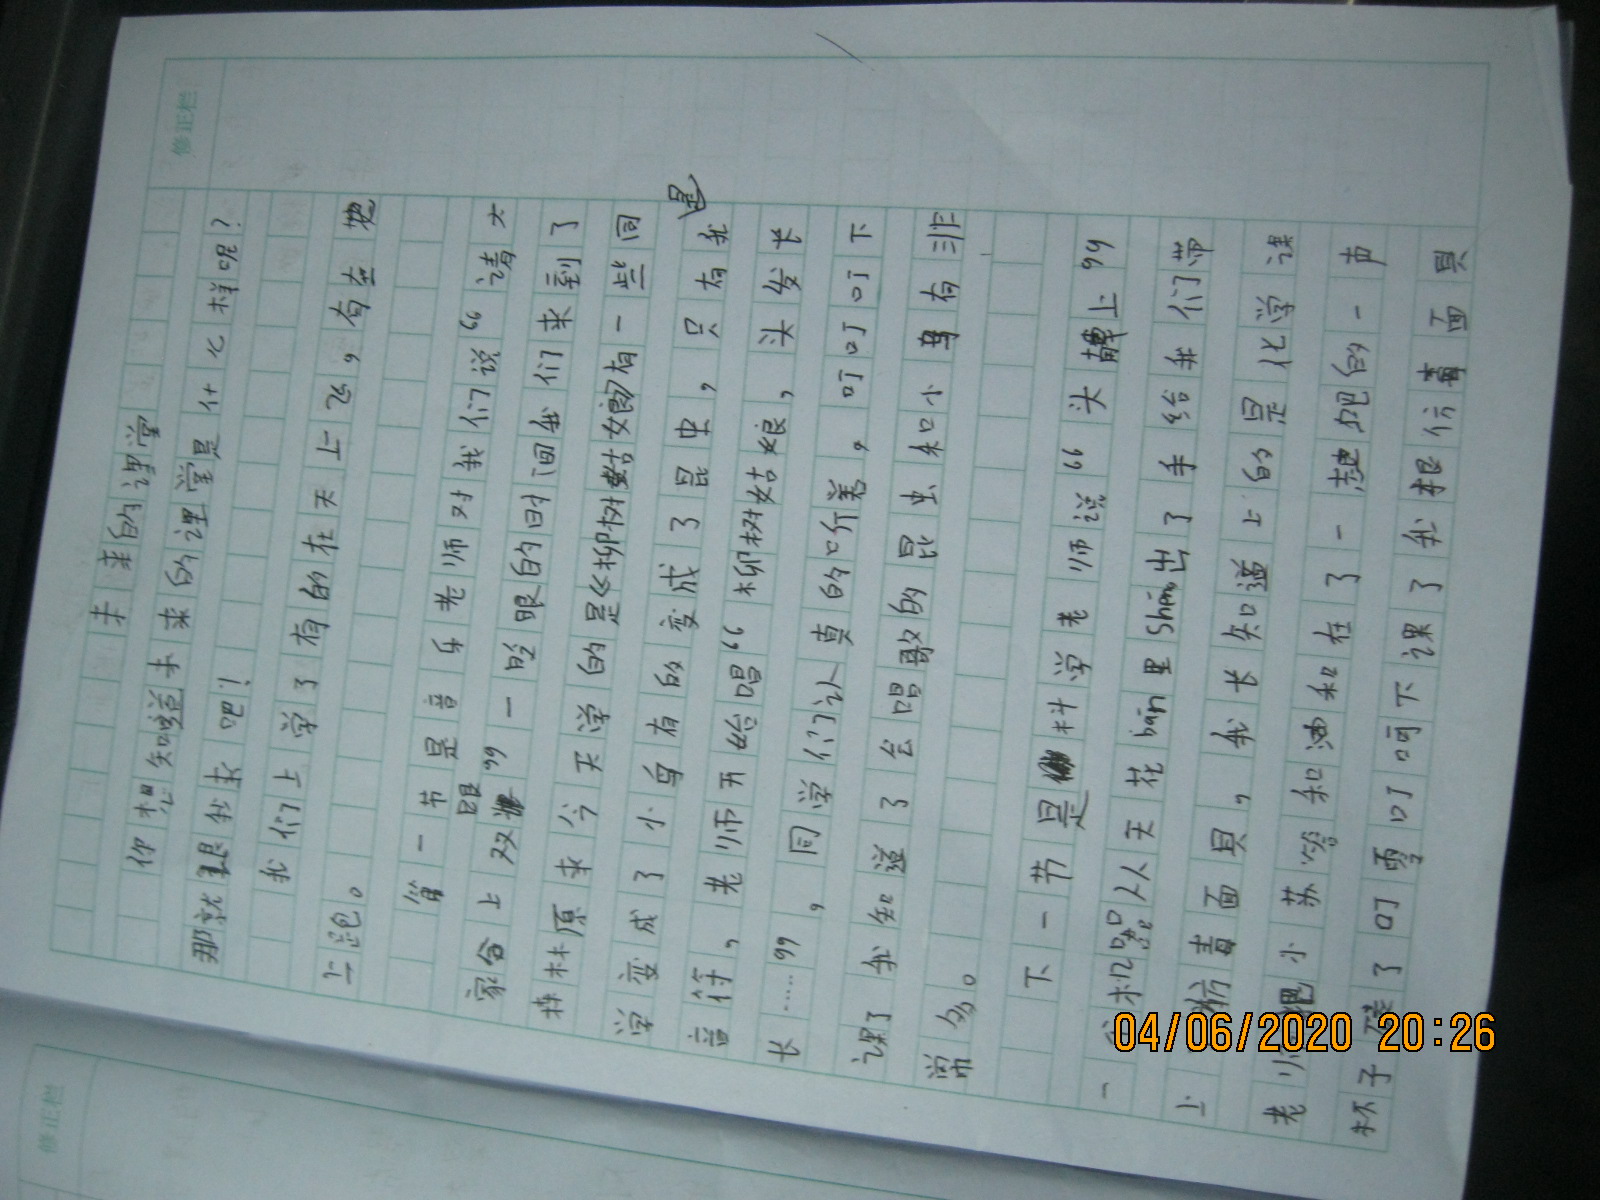 未来的课堂
你想知道未来的课堂是什么样呢?
那就跟我来吧!
我们上学了有的在天上飞,有在地
上跑。
第一节是音乐老师对我们说“请大
家合上双眼”一眨眼的时间我们来到了
森林原来今天学的是《柳树姑娘有一些同
学变成了小鸟有的变成了昆虫,只有我是
音符,老师开始唱“柳树姑娘,头发长
长……”,同学们认真的听着。叮叮叮下
课了我知道了会唱歌的昆虫和小鸟有非
常多。
下一节是科学老师说“头戴上”
一个机器人从天花bǎn里shēn出了手给我们带
上防毒面具,我才知道上的是化学课
老师把小苏打和油和在了一起啪的一声
杯子碎了叮零叮呵下课了我把防毒面具
修正栏
修正栏
04/06/2020 20:26